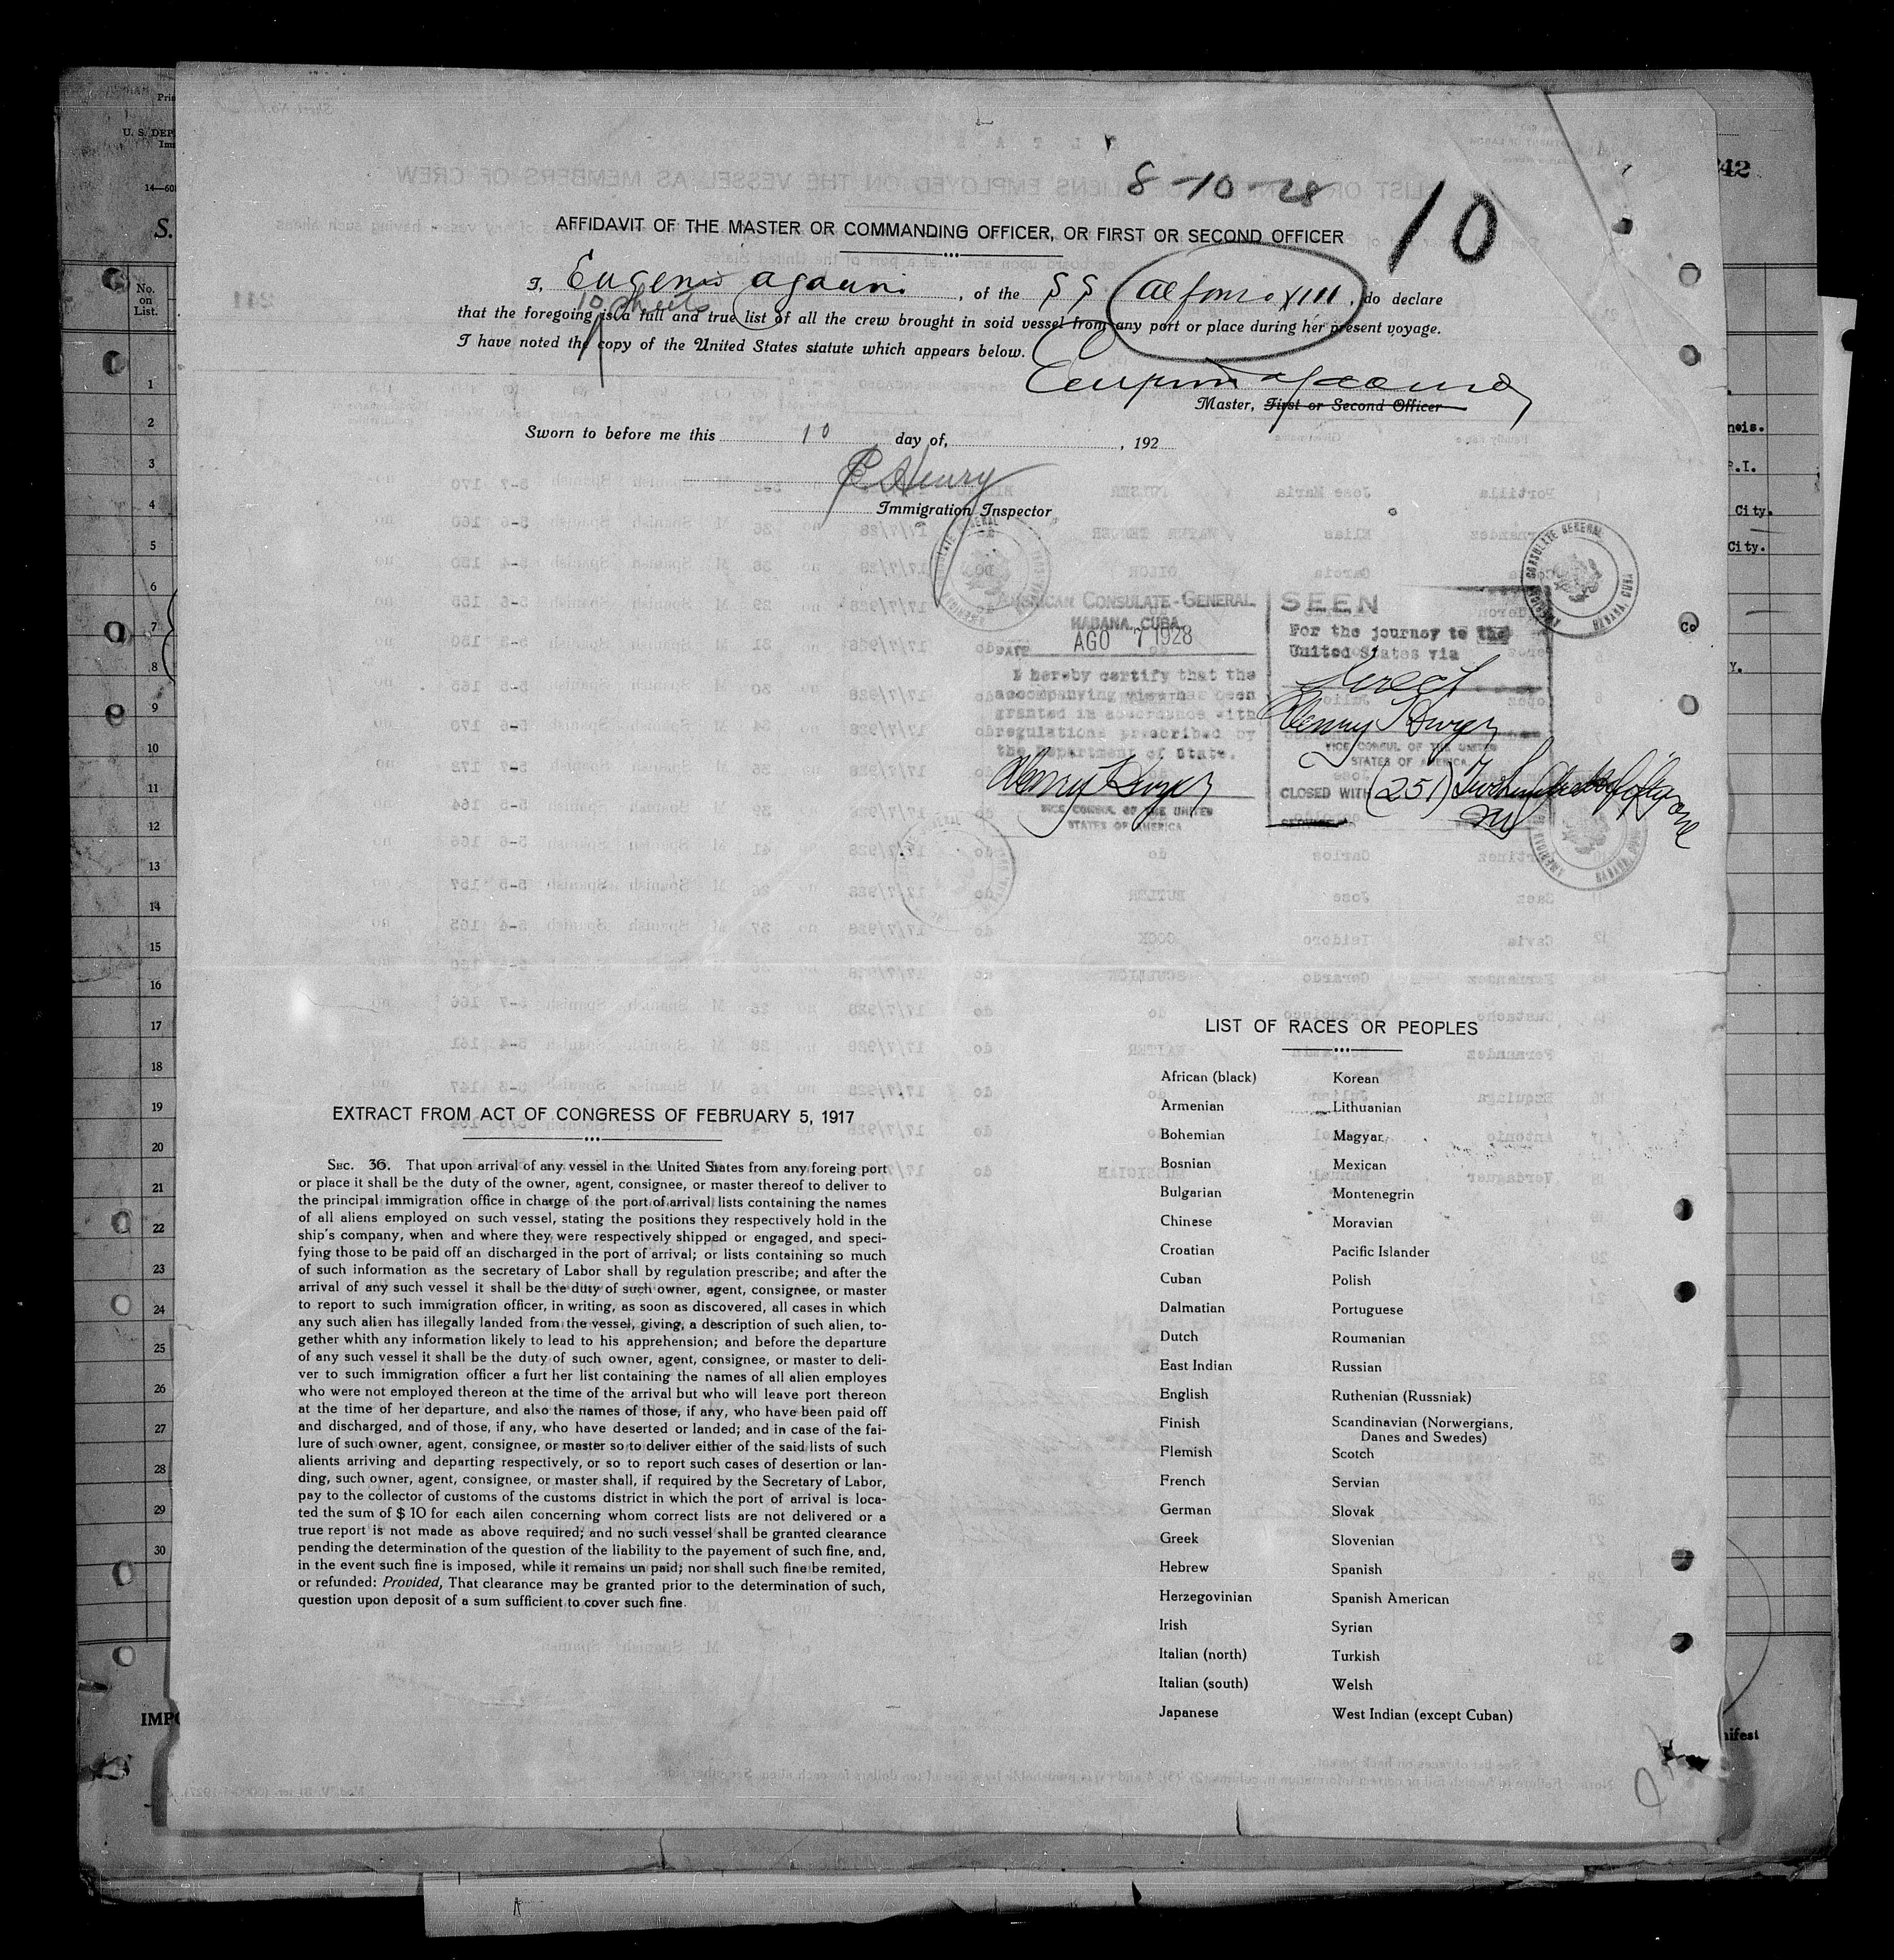 8-10-28
10
AFFIDAVIT OF THE MASTER OR COMMANDING OFFICER, OR FIRST OR SECOND OFFICER
I, Eugenio Agacino, of the SS Alfonso XIII, do declare
10 sheets
that the foregoing is a full and true list of all the crew brought in soid vessel from any port or place during her present voyage.
I have noted the copy of the United States statute which appears below.
Master, First or Second Officer
Sworn to before me this 10 day of, , 192
Henry
Immigration Inspector
AMERICAN CONSULATE-GENERAL
HABANA, CUBA.
DATE AGO 7 1928
I hereby certify that the
accompanying visa has been
granted in accordance with
regulations prescribed by
the Department of State.
VICE CONSUL OF THE UNITED
STATES OF AMERICA
SEEN
For the journey to the
United States via
direct
VICE CONSUL OF THE UNITED
STATES OF AMERICA
CLOSED WITH (251) Two hundred fifty one
AMERICAN CONSULATE GENERAL
LIST OF RACES OR PEOPLES
African (black)
Armenian
Bohemian
Bosnian
Bulgarian
Chinese
Croatian
Cuban
Dalmatian
Dutch
East Indian
English
Finish
Flemish
French
German
Greek
Hebrew
Herzegovinian
Irish
Italian (north)
Italian (south)
Japanese
Korean
Lithuanian
Magyar
Mexican
Montenegrin
Moravian
Pacific Islander
Polish
Portuguese
Roumanian
Russian
Ruthenian (Russniak)
Scandinavian (Norwergians,
Danes and Swedes)
Scotch
Servian
Slovak
Slovenian
Spanish
Spanish American
Syrian
Turkish
Welsh
West Indian (except Cuban)
EXTRACT FROM ACT OF CONGRESS OF FEBRUARY 5, 1917
SEC. 36. That upon arrival of any vessel in the United States from any foreing port
or place it shall be the duty of the owner, agent, consignee, or master thereof to deliver to
the principal immigration office in charge of the port of arrival lists containing the names
of all aliens employed on such vessel, stating the positions they respectively hold in the
ship's company, when and where they were respectively shipped or engaged, and speci-
fying those to be paid off an discharged in the port of arrival; or lists containing so much
of such information as the secretary of Labor shall by regulation prescribe; and after the
arrival of any such vessel it shall be the duty of such owner, agent, consignee, or master
to report to such immigration officer, in writing, as soon as discovered, all cases in which
any such alien has illegally landed from the vessel, giving, a description of such alien, to-
gether whith any information likely to lead to his apprehension; and before the departure
of any such vessel it shall be the duty of such owner, agent, consignee, or master to deli-
ver to such immigration officer a furt her list containing the names of all alien employes
who were not employed thereon at the time of the arrival but who will leave port thereon
at the time of her departure, and also the names of those, if any, who have been paid off
and discharged, and of those, if any, who have deserted or landed; and in case of the fai-
lure of such owner, agent, consignee, or master so to deliver either of the said lists of such
alients arriving and departing respectively, or so to report such cases of desertion or lan-
ding, such owner, agent, consignee, or master shall, if required by the Secretary of Labor,
pay to the collector of customs of the customs district in which the port of arrival is loca-
ted the sum of $ 10 for each ailen concerning whom correct lists are not delivered or a
true report is not made as above required; and no such vessel shall be granted clearance
pending the determination of the question of the liability to the payement of such fine, and,
in the event such fine is imposed, while it remains un paid; nor shall such fine be remited,
or refunded: Provided, That clearance may be granted prior to the determination of such,
question upon deposit of a sum sufficient to cover such fine.
U. S. DEP
S.
No.
on
List.
1
2
3
4
5
6
7
8
9
10
11
12
13
14
15
16
17
18
19
20
21
22
23
24
25
26
27
28
29
30
City.
City.
Co